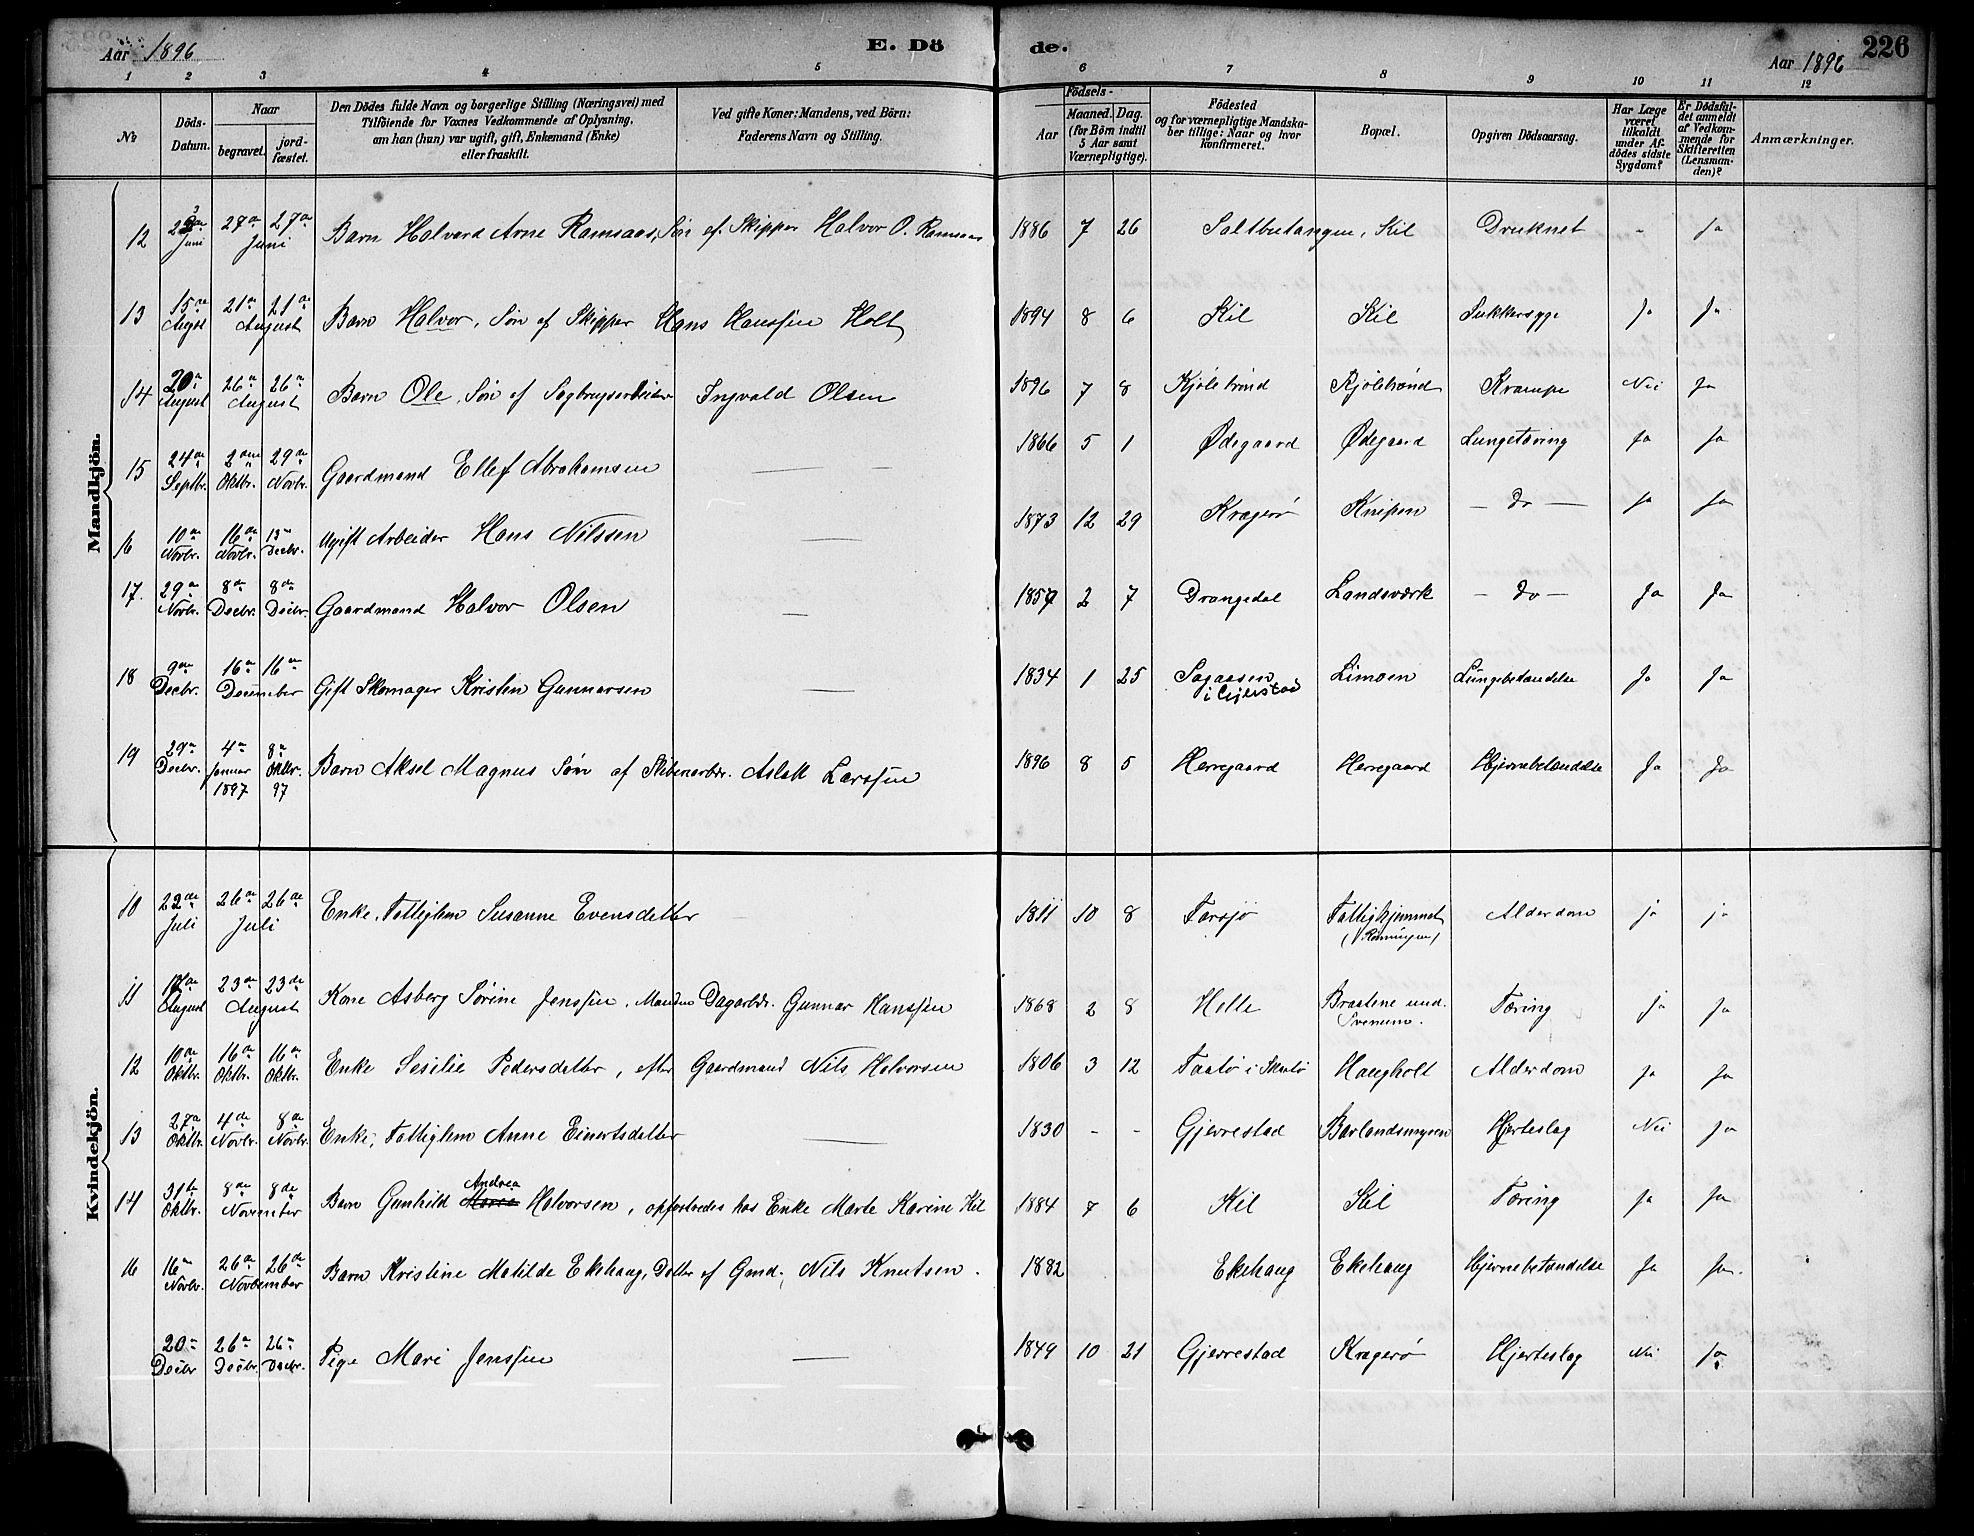 Aar 1896
E. Dö
de.
Aar 1896
226
1 2 3 4 5 6 7 8 9 10 11 12
No
Döds-
Datum.
Naar
begravet.
jord-
fæstet.
Den Dödes fulde Navn og borgerlige Stilling (Næringsvei) med
Tilföiende for Voxnes Vedkommende af Oplysning,
om han (hun) var ugift, gift, Enkemand (Enke)
eller fraskilt.
Ved gifte Koner: Mandens, ved Börn:
Faderens Navn og Stilling.
Födsels-
Aar
Maaned. Dag.
(for Börn indtil
5 Aar samt
Værnepligtige).
Födested
og for værnepligtige Mandska-
ber tillige: Naar og hvor
konfirmeret.
Bopæl.
Opgiven Dödsaarsag.
Har Læge
været
tilkaldt
under Af-
dödes sidste
Sygdom?
Er Dödsfal-
det anmeldt
af Vedkom-
mende for
Skifteretten
(Lensman-
den)?
Anmærkninger.
Mandkjön.
12 Juni 27de 27de Juni Barn Halvard Arne Ramsaas, Søn af Skipper Halvor O. Ramsaas 1886 7 26 Saltbutangen, Kil Druknet - Ja
13 15de Augst 21de 21de August Barn Halvor, Søn af Skipper Hans Hanssen Holt 1894 8 6 Kil Kil Sukkersyge Ja Ja
14 20de August 26de 26de August Barn Ole, Søn af Sagbrugsarbeider Ingvald Olsen 1896 7 8 Kjölebrönd Kjölebrönd Krampe Nei Ja
15 24de Septbr. 2den Oktbr. 29de Novbr. Gaardmand Ellef Abrahamsen — — 1866 5 1 Ødegaard Ødegaard Lungetæring Ja Ja
16 10de Novbr. 16de Novbr. 13de Decbr. Ugift Arbeider Hans Nilssen — 1873 12 29 Kragerø Knipen — do — Ja Ja
17. 29de Novbr. 8de Decbr. 8de Decbr. Gaardmand Halvor Olsen — 1857 2 7 Drangedal Landsværk — do — Ja Ja
18 9de Decbr. 16de 16de December Gift Skomager Kristen Gunnarsen — 1834 1 25 Sagaasen
i Gjerstad Limoen Lungebetændelse Ja Ja
19 29de Decbr. 4de Januar 1897 8de Oktbr. 97 Barn Aksel Magnus Søn af Skibsarbr. Aslak Larssen 1896 8 5 Herregaard Herregaard Hjernebetændelse Ja Ja
Kvindekjön.
10 22de Juli 26de 26de Juli Enke, Fattiglem Susanne Evensdatter 1811 10 8 Farsjø Fattighjemmet Alderdom ja ja
11 August 23de 23de August Kone Asberg Sørine Jenssen. Manden Dagarbdr. Gunnar Hanssen 1868 2 8 Helle Braatene und. Tæring ja ja
12 10de Oktbr. 16de Oktbr. 16de Oktbr. Enke Sesilie Pedersdatter, efter Gaardmand Nils Halvorsen 1806 3 12 Taatø i Skaatø Haugholt Alderdom ja ja
13 27de Oktbr. 4de Novbr. 8de Novbr. Enke, Fattiglem Anne Einertsdatter — 1830 - - Gjerrestad Barlandsmyren Hjerteslag Nei ja
14 31te Oktbr. 8de 8de November Barn Gunhild Andrea Halvorsen, opfostredes hos Enke Marte Karine Kil 1884 7 6 Kil Kil Tæring ja ja
16 16de Novbr. 26de 26de November Barn Kristine Matilde Ekehaug, Datter af Gmd. Nils Knutsen. 1882 Ekehaug Ekehaug Hjernebetændelse Ja Ja.
20de Decbr 26de Decbr. 26de Decbr. Pige Mari Jenssen — 1849 10 21 Gjerrestad Kragerø Hjerteslag Nei Ja